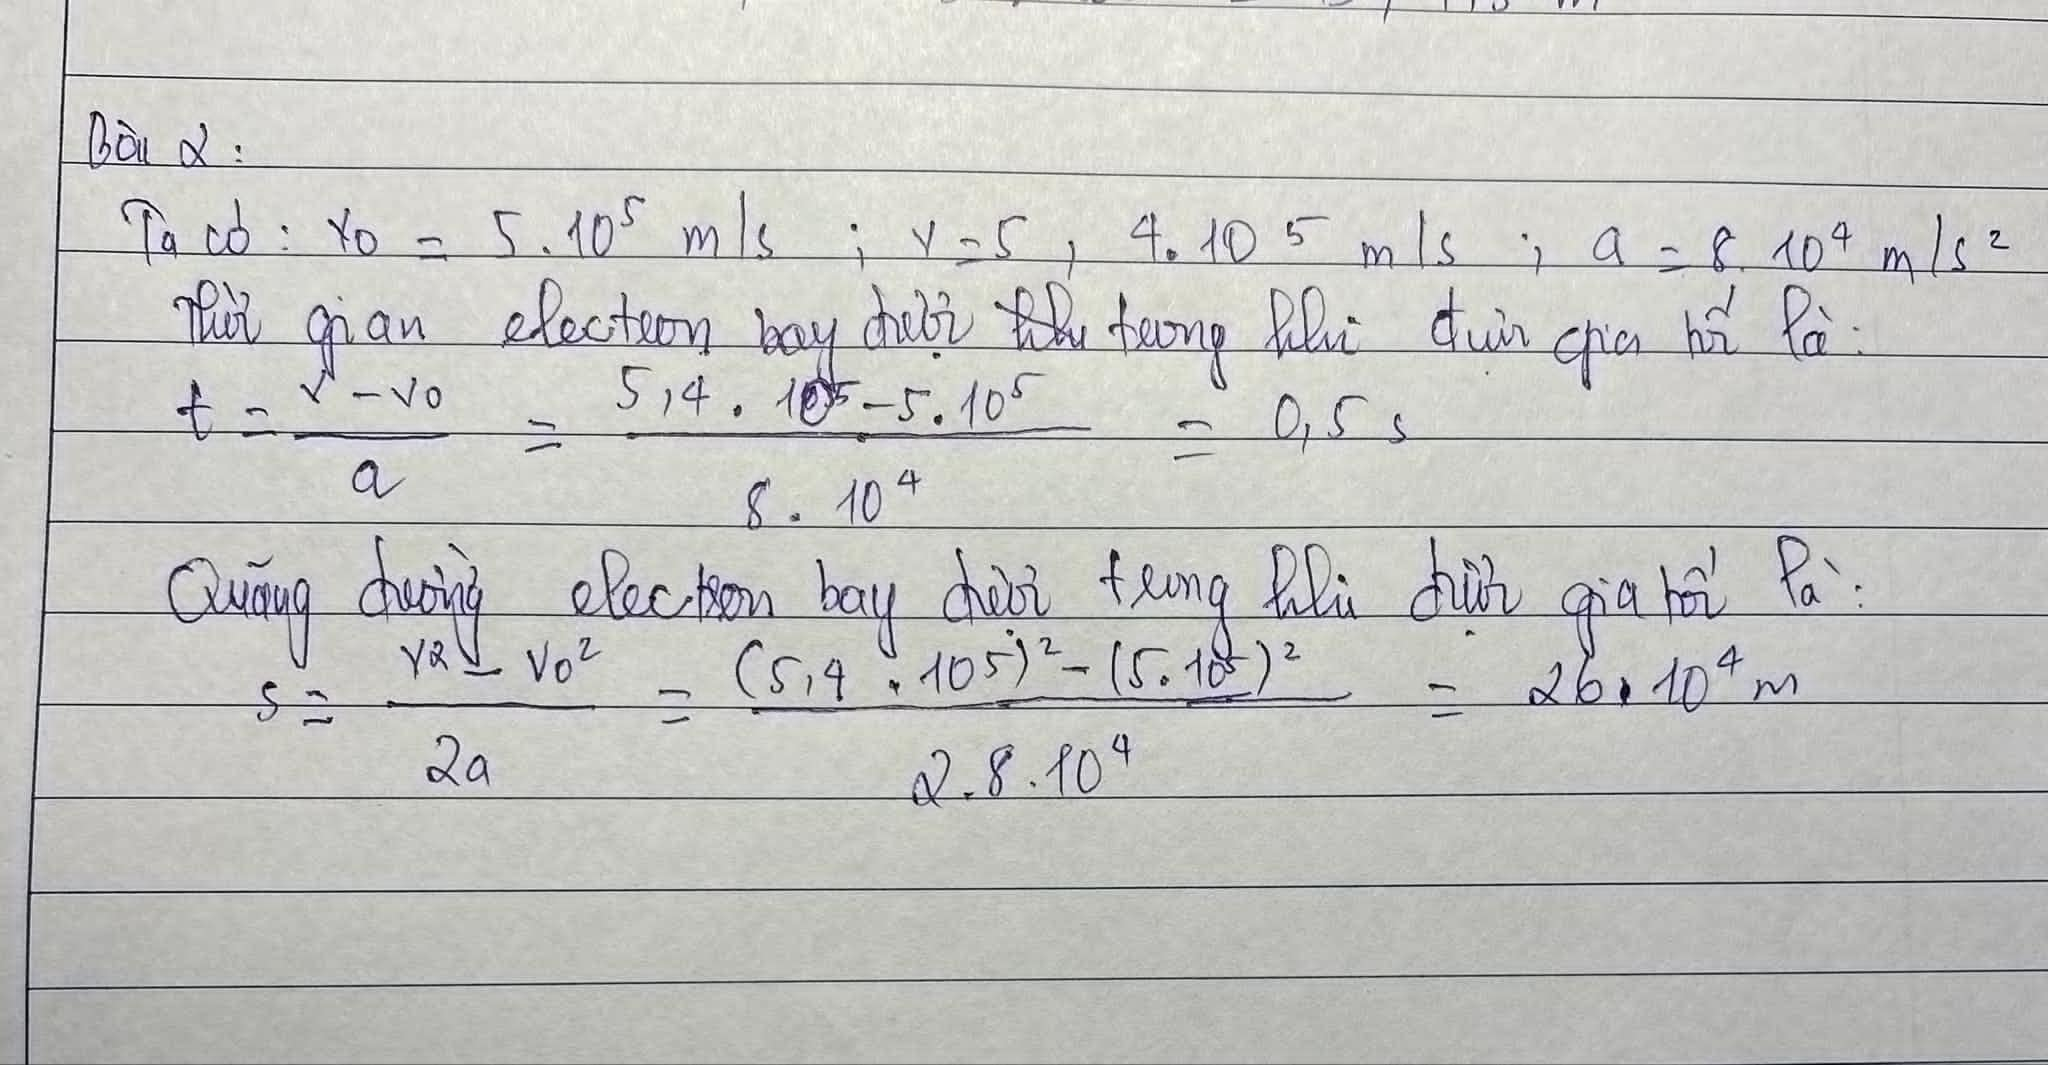 Bài 2:
Ta có: v0 = 5.10^5 m/s ; v = 5,4.10^5 m/s ; a = 8.10^4 m/s²
Thời gian electron bay được trong khi được gia tốc là:
t = (v - v0)/a = (5,4.10^5 - 5.10^5)/(8.10^4) = 0,5 s
Quãng đường electron bay được trong khi được gia tốc là:
s = (v2 - v0²)/(2a) = ((5,4.10^5)² - (5.10^5)²)/(2.8.10^4) = 26.10^4 m